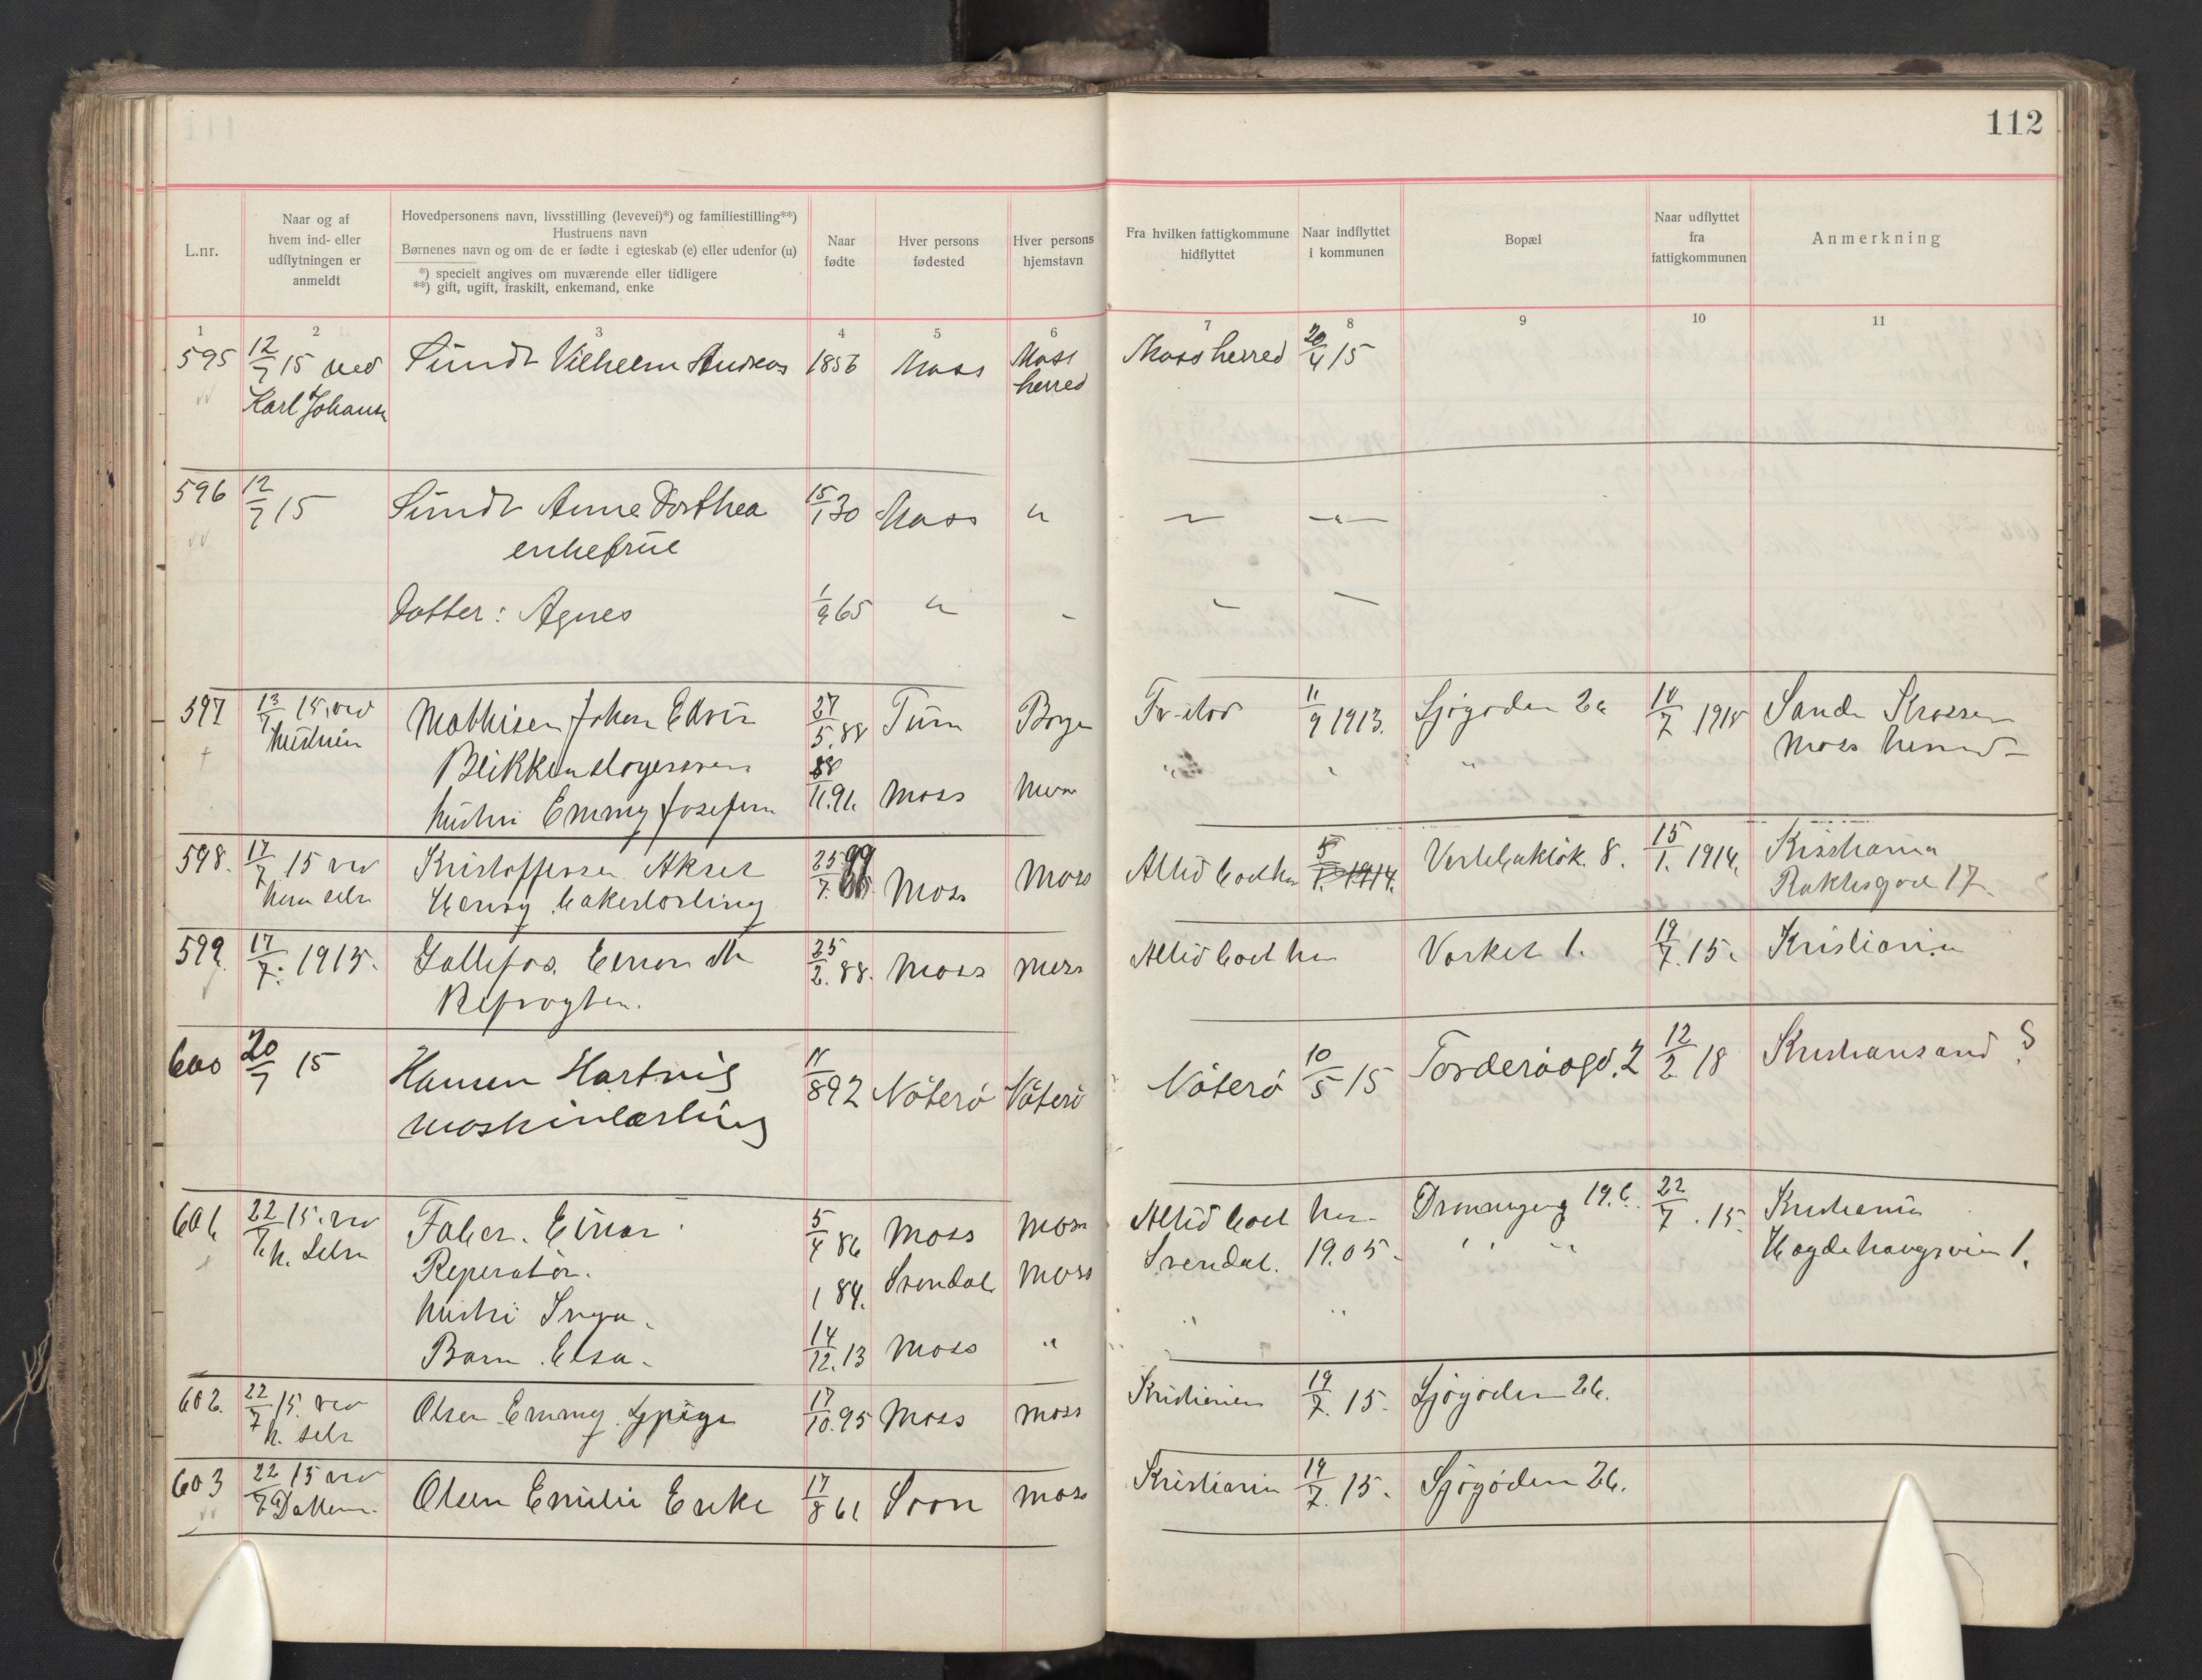 112
L.nr.
Naar og af
hvem ind- eller
udflytningen er
anmeldt
Hovedpersonens navn, livsstilling (levevei)*) og familiestilling**)
Hustruens navn
Børnenes navn og om de er fødte i egteskab (e) eller udenfor (u)
*) specielt angives om nuværende eller tidligere
**) gift, ugift, fraskilt, enkemand, enke
Naar
fødte
Hver persons
fødested
Hver persons
hjemstavn
Fra hvilken fattigkommune
hidflyttet
Naar indflyttet
i kommunen
Bopæl
Naar udflyttet
fra
fattigkommunen
Anmerkning
1 2 3 4 5 6 7 8 9 10 11
595 12/7 15 ved Sundt Vilhelm Andreas 1856 Moss Moss Moss herred 20/4 15
Karl Johansen herred
596 12/7 15 Sundt Anne Dorthea 15/1 30 Moss "
enkefrue
Datter: Agnes 1/9 65 "
597 13/7 15 ved Mathisen Johan Edvin 27/5 88 Tune Borge 11/9 1913. Sjøgaden 2 10/7 1918 Sande Krossern
hustruen Blikkenslagersvend Moss herred
hustru Emmy Josefine 11.91. Moss Moss
598. 17/7 15 ved Kristoffersen Aksel 25/7 99 Moss Moss Altid boet her 5/1 1914. 8. 15/1 1914. Kristiania
ham selv Henry bakerlærling 17
599 17/7 1915. Einar 25/2 88. Moss Moss Altid boet her Værket 1. 19/7 15. Kristiania
600 20/7 15 Hansen Hartvig 11/8 92 Nøterø Nøterø Nøterø 10/5 15 Torderødgd. 2 12/2 18 Kristiansand S
maskinlærling
601 22/7 15. ved Faber. Einar 5/4 86 Moss Moss Altid boet her Dronningensg 19.b. 22/7 15. Kristiania
h. selv Reperatør. 1.
hustru Inga. 84. Svendal Moss Svendal. 1905. " "
Barn Elsa. 14/12.13 Moss "
602. 22/7 15. ved Olsen Emmy 17/10.95 Moss Moss Kristiania 19/7. 15. Sjøgaden 26.
h. selv
603 22/7 15 ved Olsen Emilie Enke 17/8 61 Soon Moss Kristiania 19/7. 15. Sjøgaden 26.
Datteren.